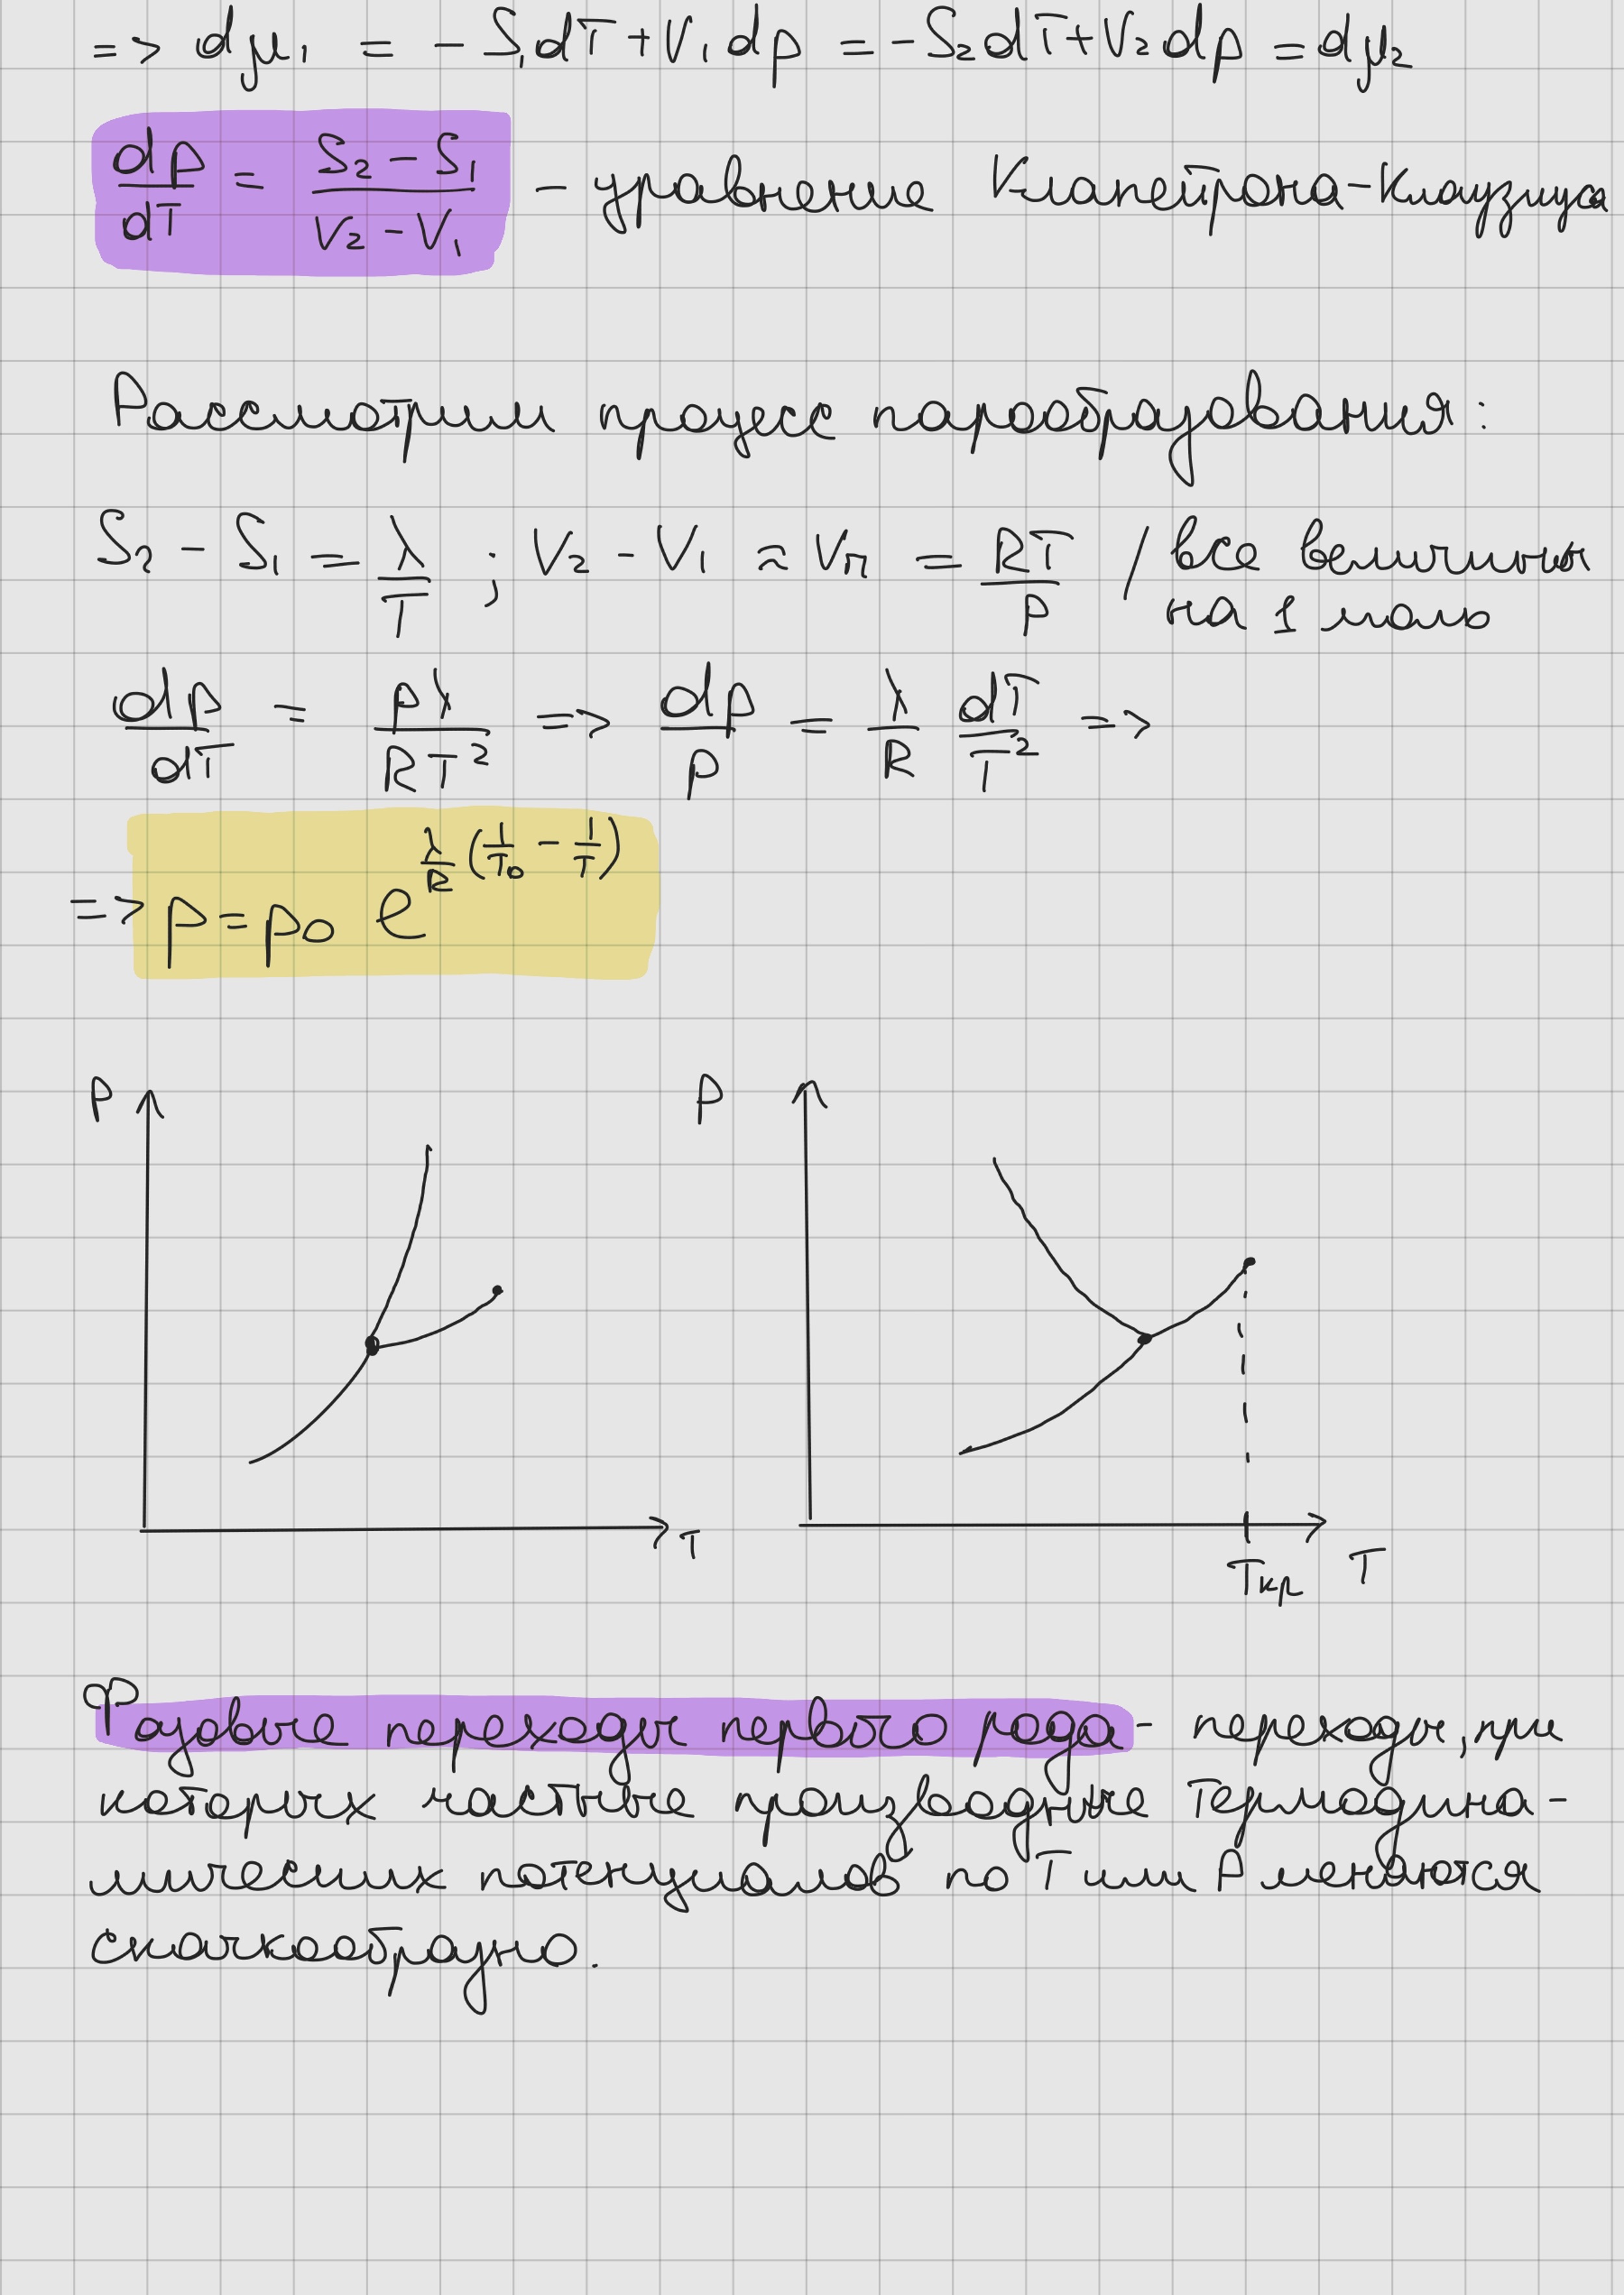 => dμ₁ = -S₁dT+V₁dp = -S₂dT+V₂dp = dμ₂
dp/dT = (S₂-S₁)/(V₂-V₁) - уравнение Клапейрона-Клаузиуса
Рассмотрим процесс парообразования:
S₂-S₁ = λ/T ; V₂-V₁ ≈ Vп = RT/P / все величины
на 1 моль
dp/dT = pλ/RT² => dp/p = λ/R dT/T² =>
=> p = p₀ e^(λ/R (1/T₀ - 1/T))
P
P
T
Tкр
T
Фазовые переходы первого рода - переходы, при
которых частные производные термодина-
мических потенциалов по T или P меняются
скачкообразно.